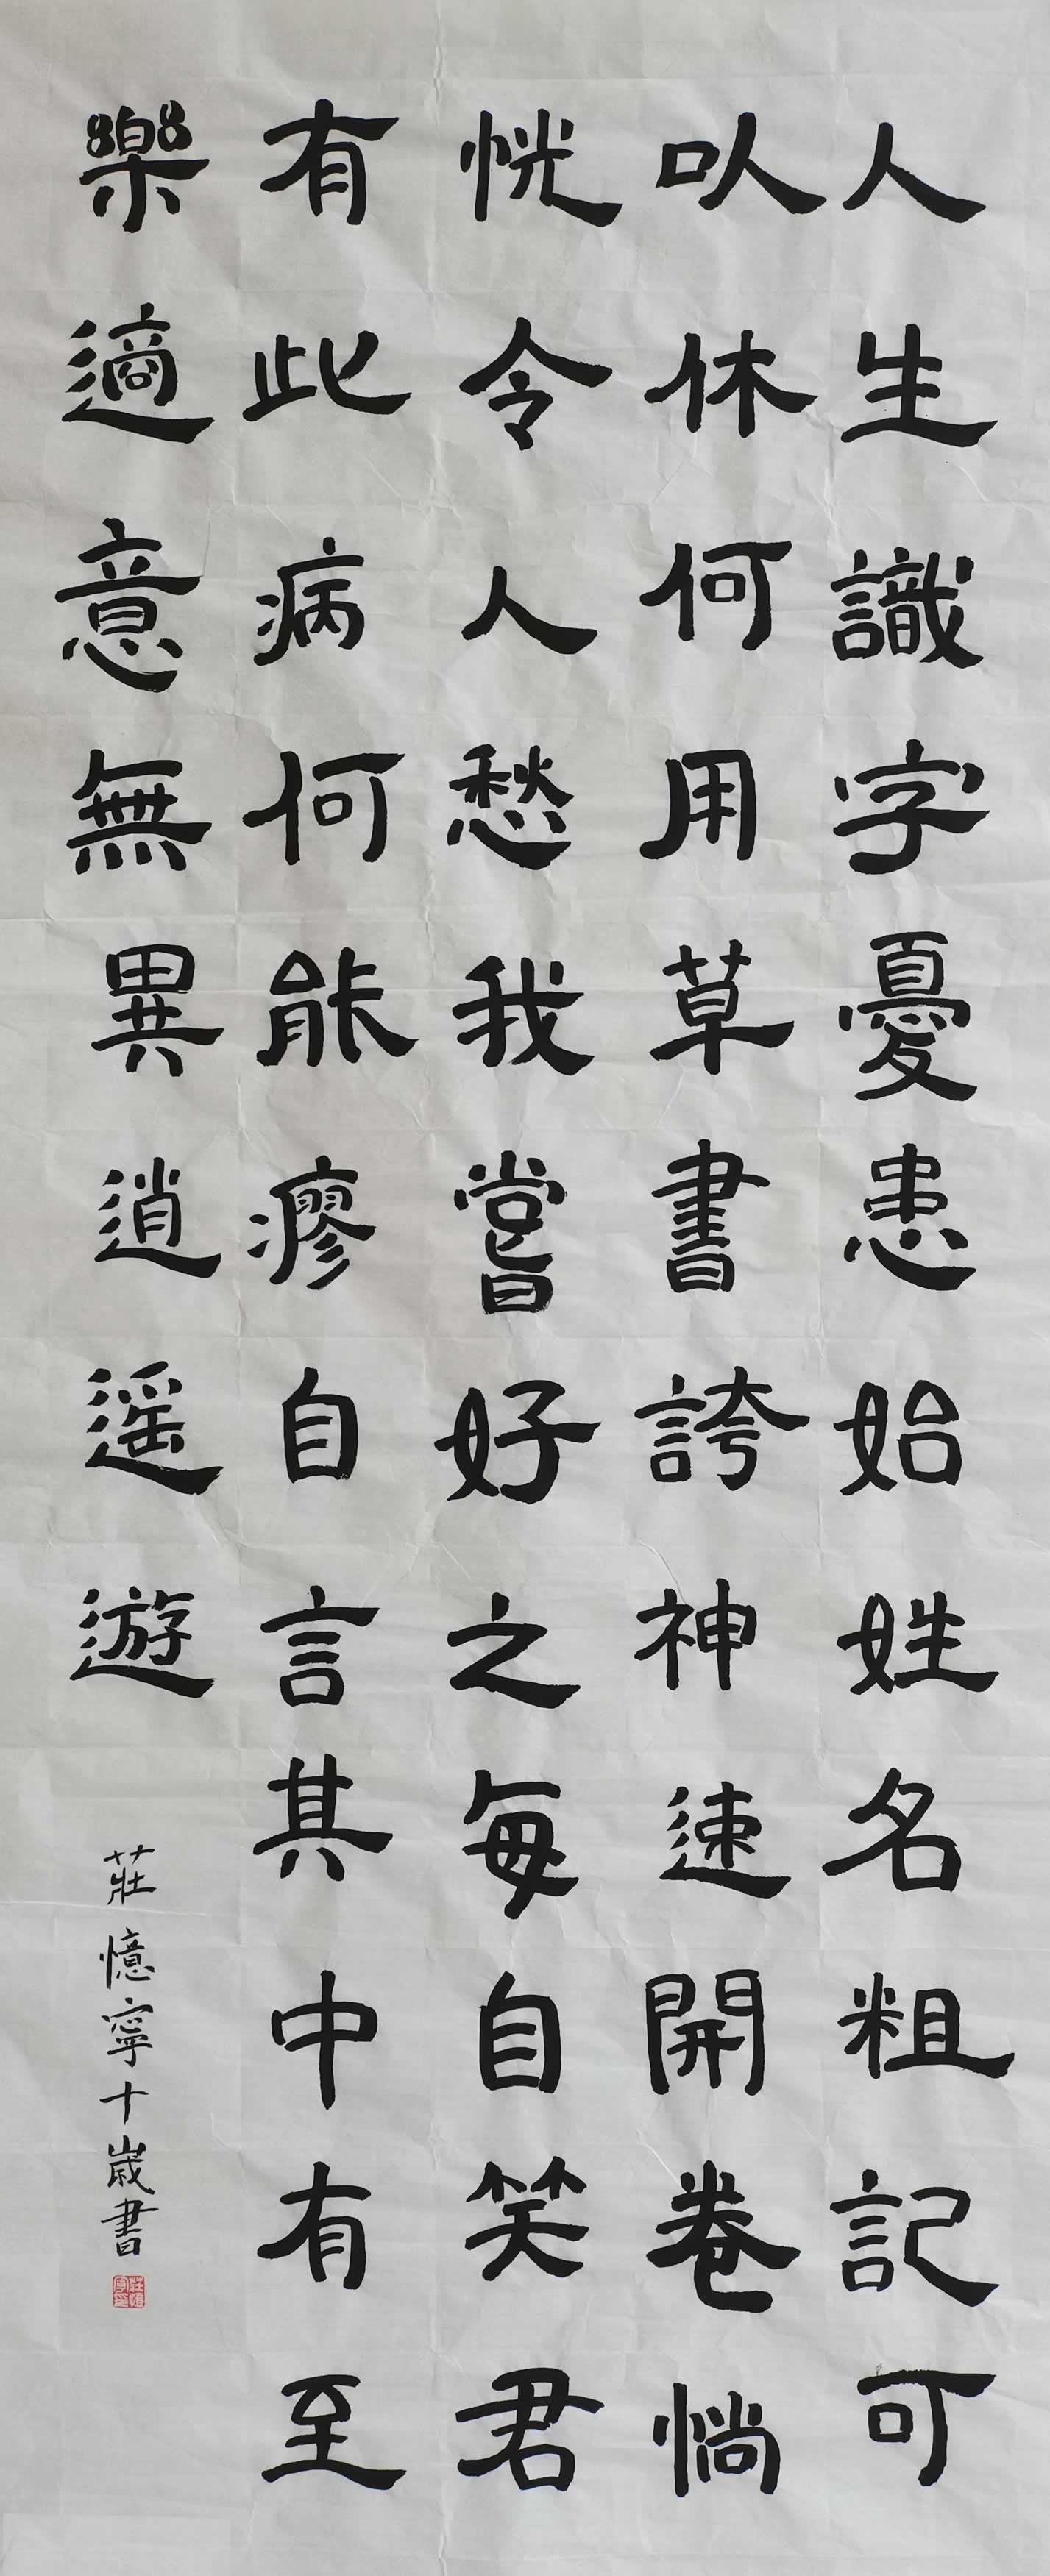 人生識字憂患始姓名粗記可
㕥休何用草書誇神速開卷惝
恍令人愁我嘗好之每自笑君
有此病何能瘳自言其中有至
樂適意無異逍遥遊
莊憶寧十歲書